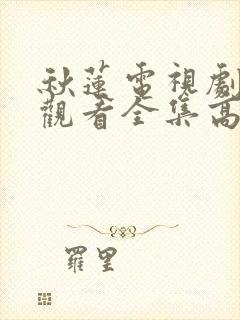 秋蓮電視劇
觀看全集高
羅里